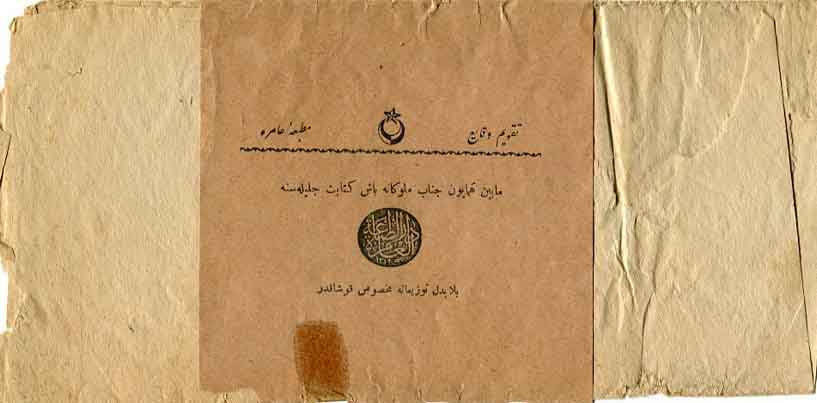 تقویم وقایع
مطبعهٔ عامره
مابین همایون جناب ملوكانه باش كتابت جلیله‌سنه
دار الطباعة العامره
بلا بدل توزیعاته مخصوص قوشاقدر